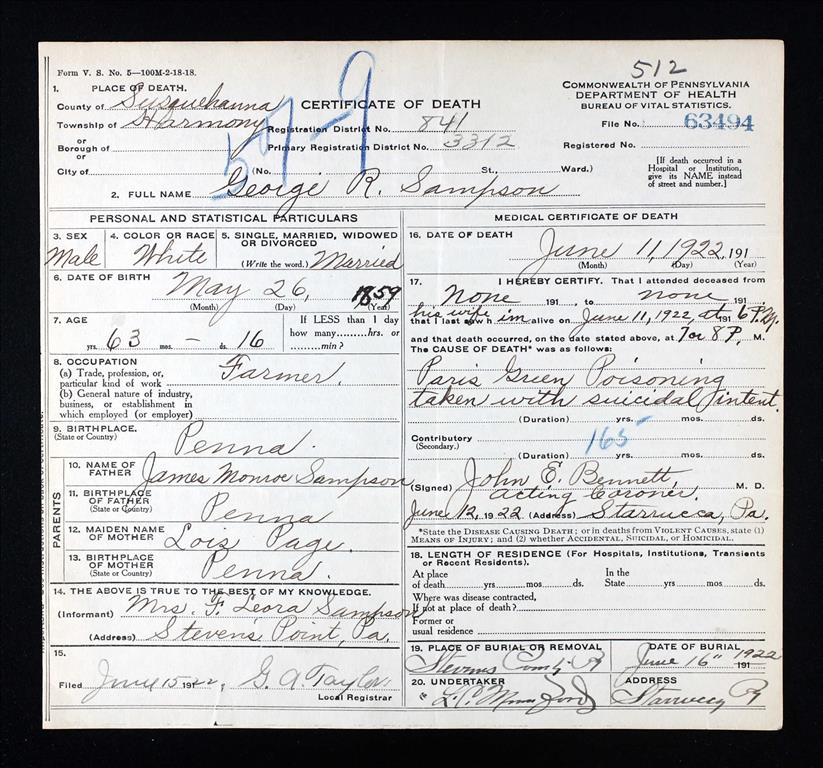 512
Form V. S. No. 5—100M-2-18-18.
1. PLACE OF DEATH.
County of Susquehanna
Township of Harmony
or
Borough of
or
City of
CERTIFICATE OF DEATH
Registration District No. 841
Primary Registration District No. 3312
(No. St., Ward.)
57-9
COMMONWEALTH OF PENNSYLVANIA
DEPARTMENT OF HEALTH
BUREAU OF VITAL STATISTICS.
File No. 63494
Registered No.
[If death occurred in a
Hospital or Institution,
give its NAME instead
of street and number.]
2. FULL NAME George R. Sampson
PERSONAL AND STATISTICAL PARTICULARS
3. SEX
Male
4. COLOR OR RACE
White
5. SINGLE, MARRIED, WIDOWED
OR DIVORCED
(Write the word.) Married
6. DATE OF BIRTH
May 26, 1859
(Month) (Day) (Year)
7. AGE
63 yrs. — mos. 16 ds.
If LESS than 1 day
how many.........hrs. or
.........min?
8. OCCUPATION
(a) Trade, profession, or,
particular kind of work Farmer.
(b) General nature of industry,
business, or establishment in
which employed (or employer)
9. BIRTHPLACE.
(State or Country)
Penna.
PARENTS
10. NAME OF
FATHER James Monroe Sampson
11. BIRTHPLACE
OF FATHER
(State or Country) Penna
12. MAIDEN NAME
OF MOTHER Lois Page.
13. BIRTHPLACE
OF MOTHER
(State or Country) Penna.
14. THE ABOVE IS TRUE TO THE BEST OF MY KNOWLEDGE.
(Informant) Mrs. F. Leora Sampson
(Address) Steven's Point, Pa.
15.
Filed June 15 1922, G. A. Taylor
Local Registrar
MEDICAL CERTIFICATE OF DEATH
16. DATE OF DEATH
June 11, 1922, 191
(Month) (Day) (Year)
17. I HEREBY CERTIFY, That I attended deceased from
none 191 , to none, 191 ,
his wife
that I last saw him alive on June 11, 1922, at 191 6 P.M.
and that death occurred, on the date stated above, at 7 or 8 P. M.
The CAUSE OF DEATH* was as follows:
Paris Green Poisoning
taken with suicidal intent.
(Duration) yrs. mos. ds.
Contributory 165
(Secondary.)
(Duration) yrs. mos. ds.
(Signed) John E. Bennett, M. D.
acting Coroner.
June 12, 1922 (Address) Starrucca, Pa.
*State the DISEASE CAUSING DEATH; or in deaths from VIOLENT CAUSES, state (1)
MEANS OF INJURY; and (2) whether ACCIDENTAL, SUICIDAL, or HOMICIDAL.
18. LENGTH OF RESIDENCE (For Hospitals, Institutions, Transients
or Recent Residents).
At place
of death yrs. mos. ds.
In the
State yrs. mos. ds.
Where was disease contracted,
if not at place of death?
Former or
usual residence
19. PLACE OF BURIAL OR REMOVAL
Stevens
DATE OF BURIAL
June 16" 1922 191
20. UNDERTAKER
ADDRESS
Starrucca